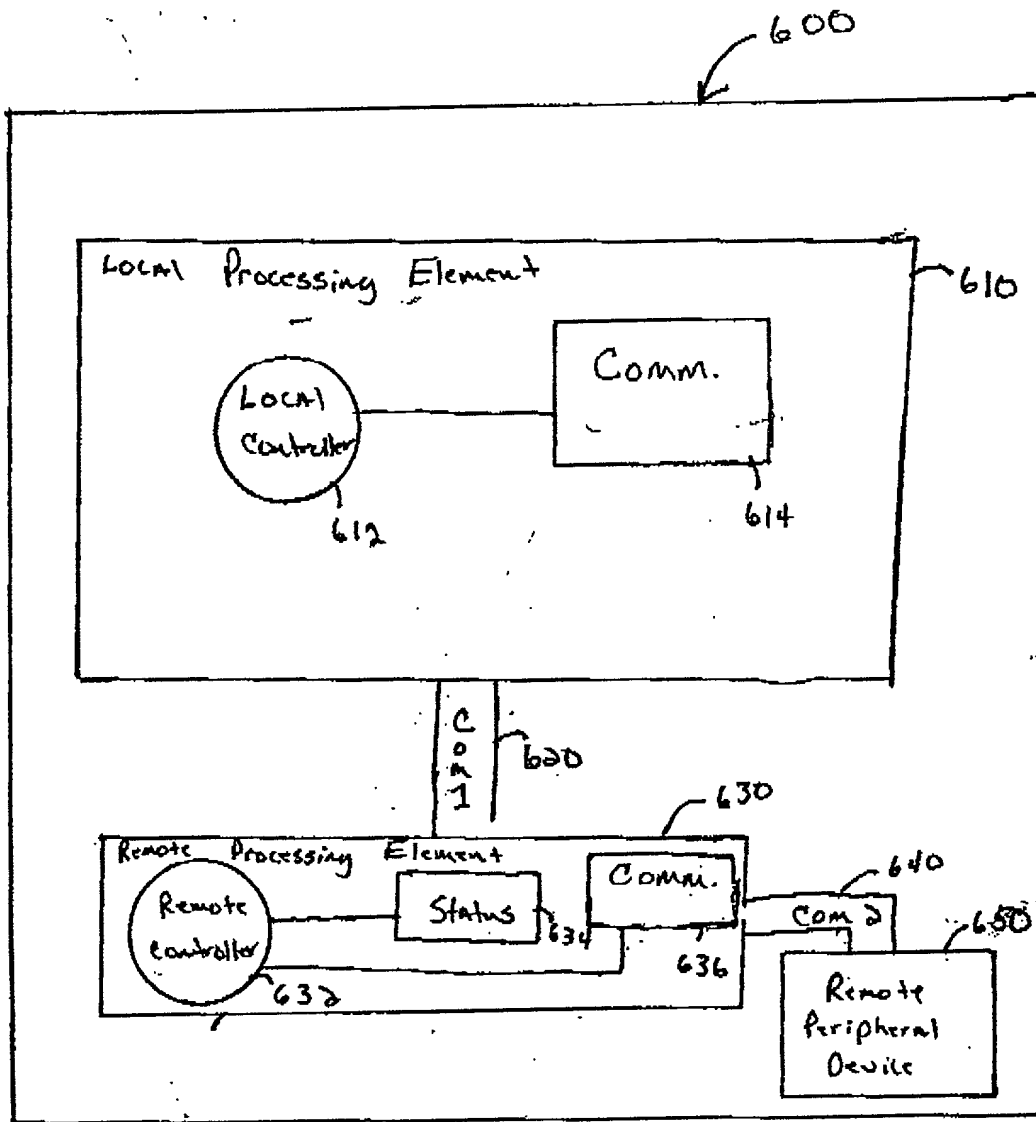 600
Local Processing Element
610
Local
Controller
612
Comm.
614
Com 1
620
630
Remote Processing Element
Remote
Controller
632
Status
634
Comm.
636
640
Com 2
650
Remote
Peripheral
Device